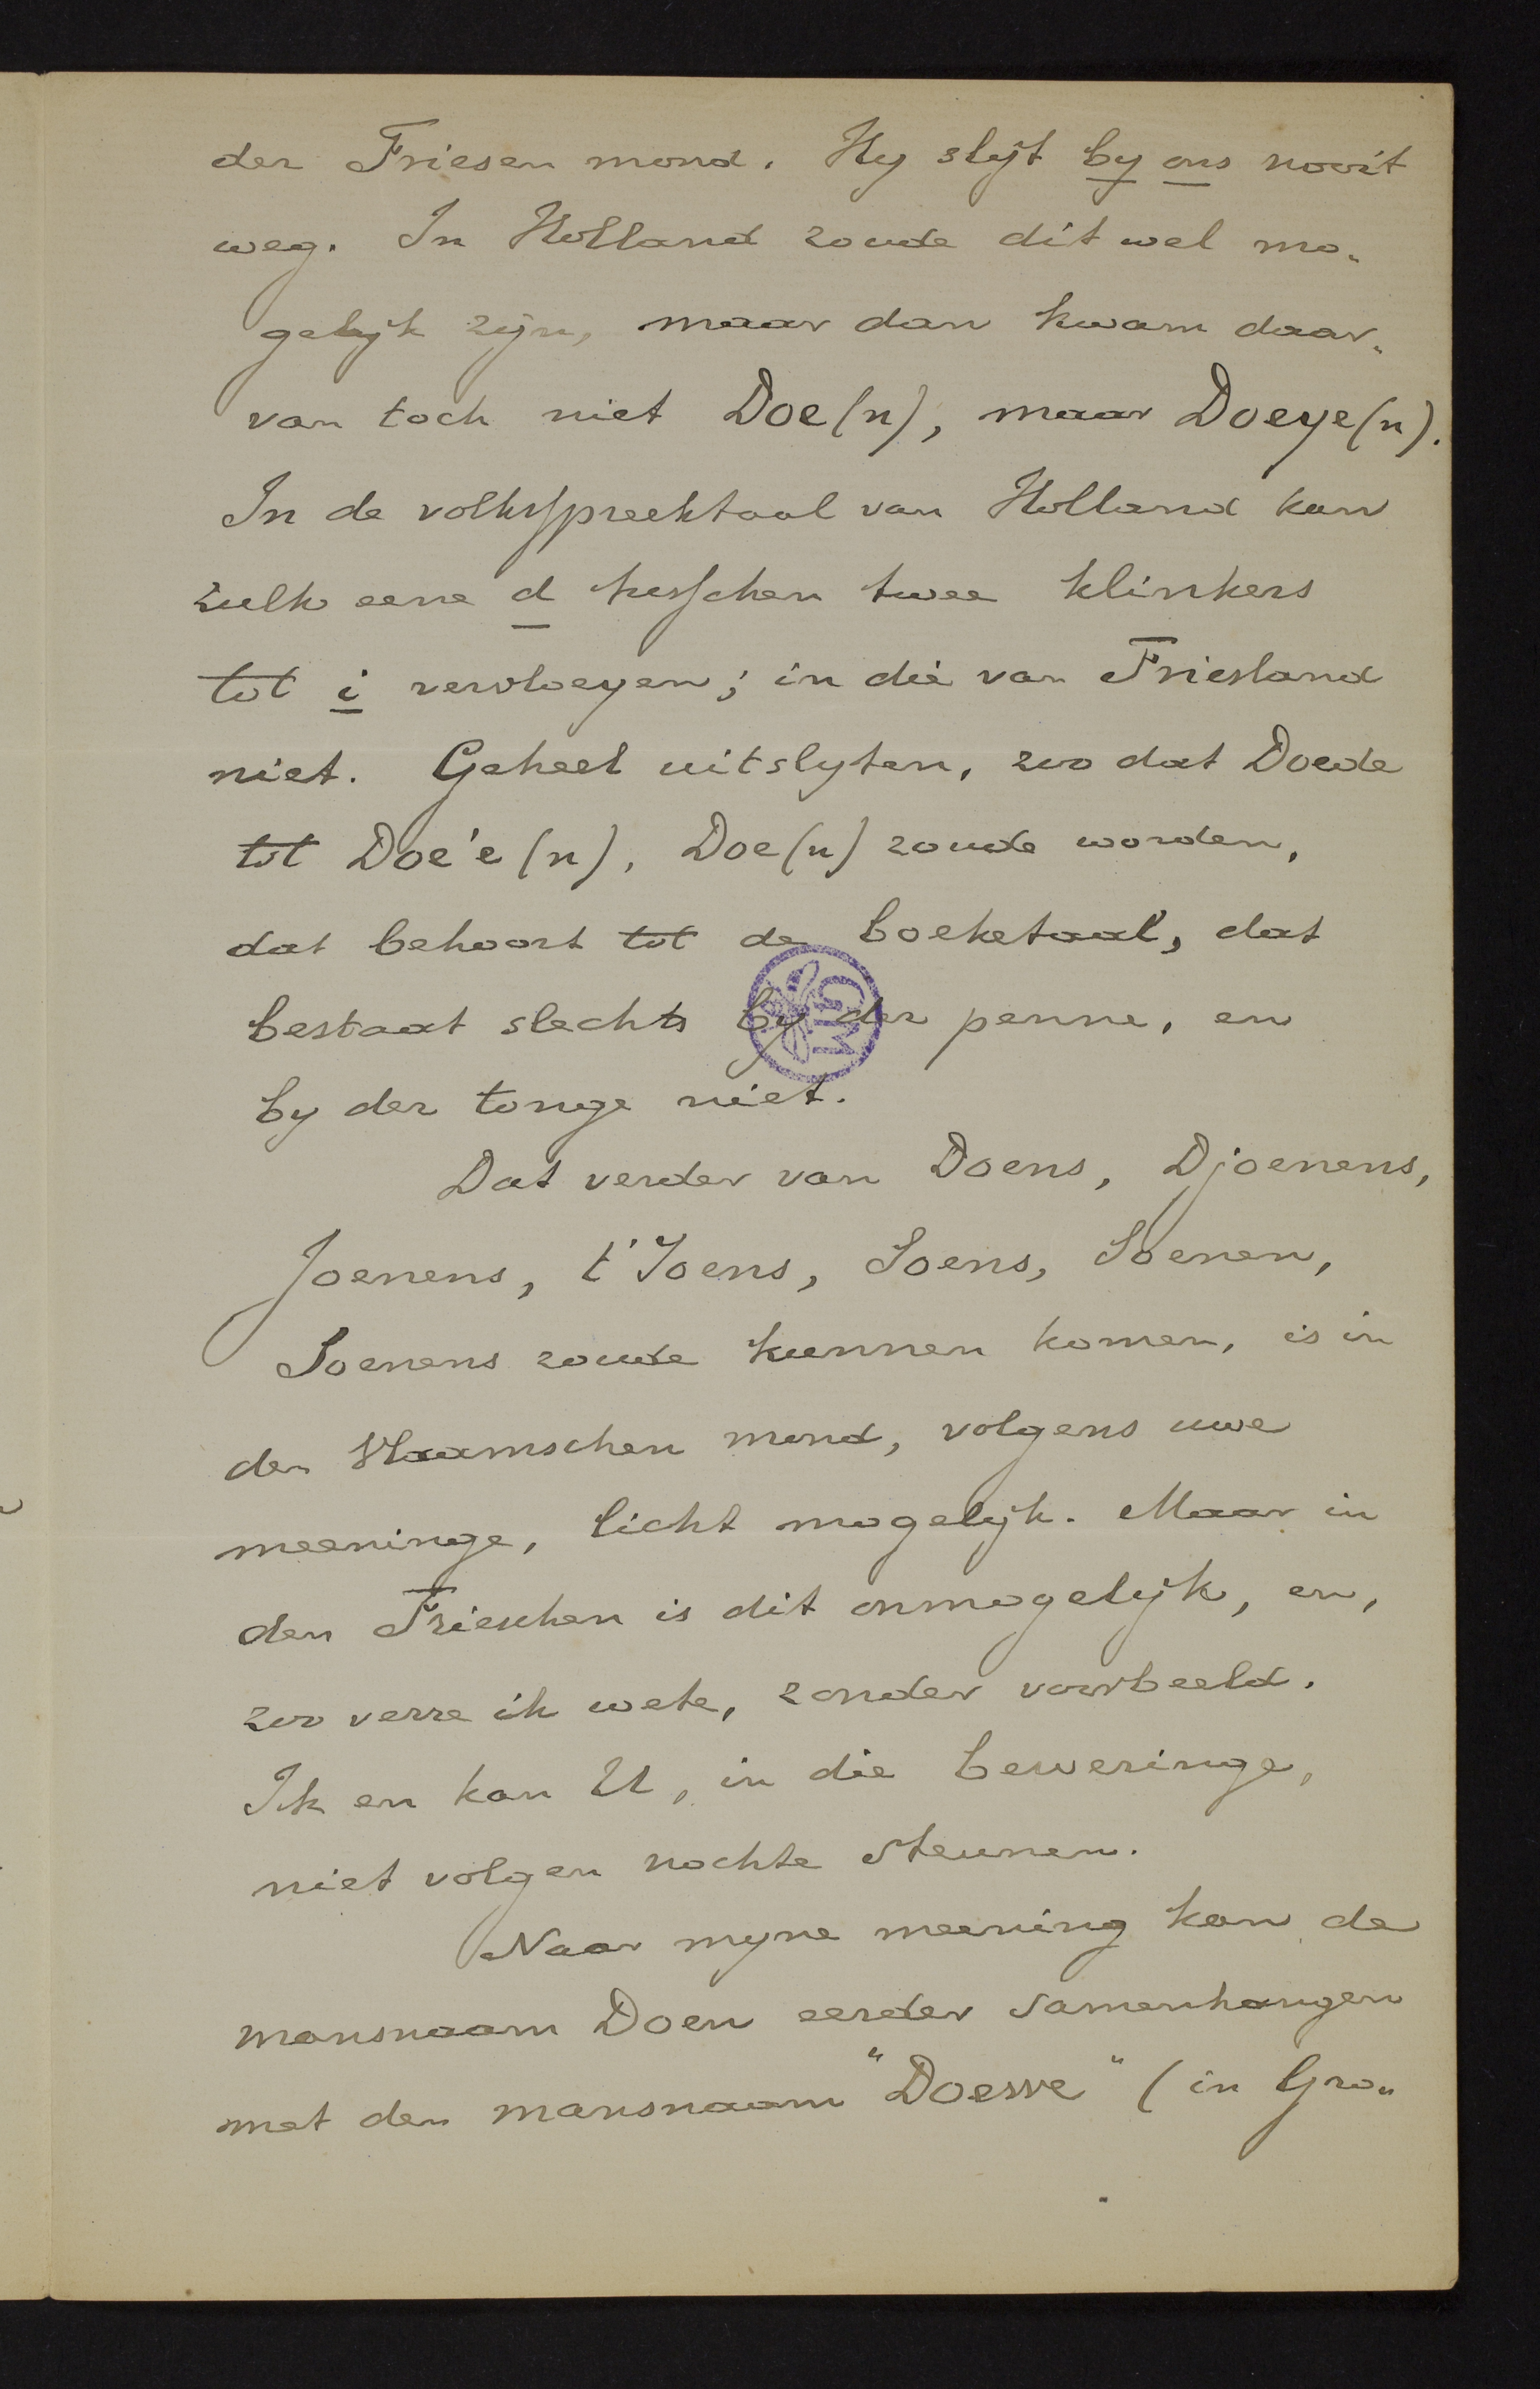 der Friesen mond. Hy slijt by ons nooit
weg. In Holland zoude dit wel mo-
gelijk zijn, maar dan kwam daar-
van toch niet Doe(n), maar Doeye(n).
In de volksspreektaal van Holland kan
zulk eene d tusschen twee klinkers
tot i vervloeyen; in die van Friesland
niet. Geheel uitslyten, zoo dat Doede
tot Doe'e (n), Doe(n) zoude worden,
dat behoort tot de boeketaal, dat
bestaat slechts by der penne, en
by der tonge niet.
GM
Dat verder van Doens, Djoenens,
Joenens, t'Joens, Soens, Soenen,
Soenens zoude kunnen komen, is in
den Vlaamschen mond, volgens uwe
meeninge, licht mogelijk. Maar in
den Frieschen is dit onmogelijk, en,
zoo verre ik wete, zonder voorbeeld.
Ik en kan U, in die beweringe,
niet volgen nochte steunen.
Naar myne meening kan de
mansnaam Doen eerder samenhangen
met den mansnaam "Doewe" (in Gro-